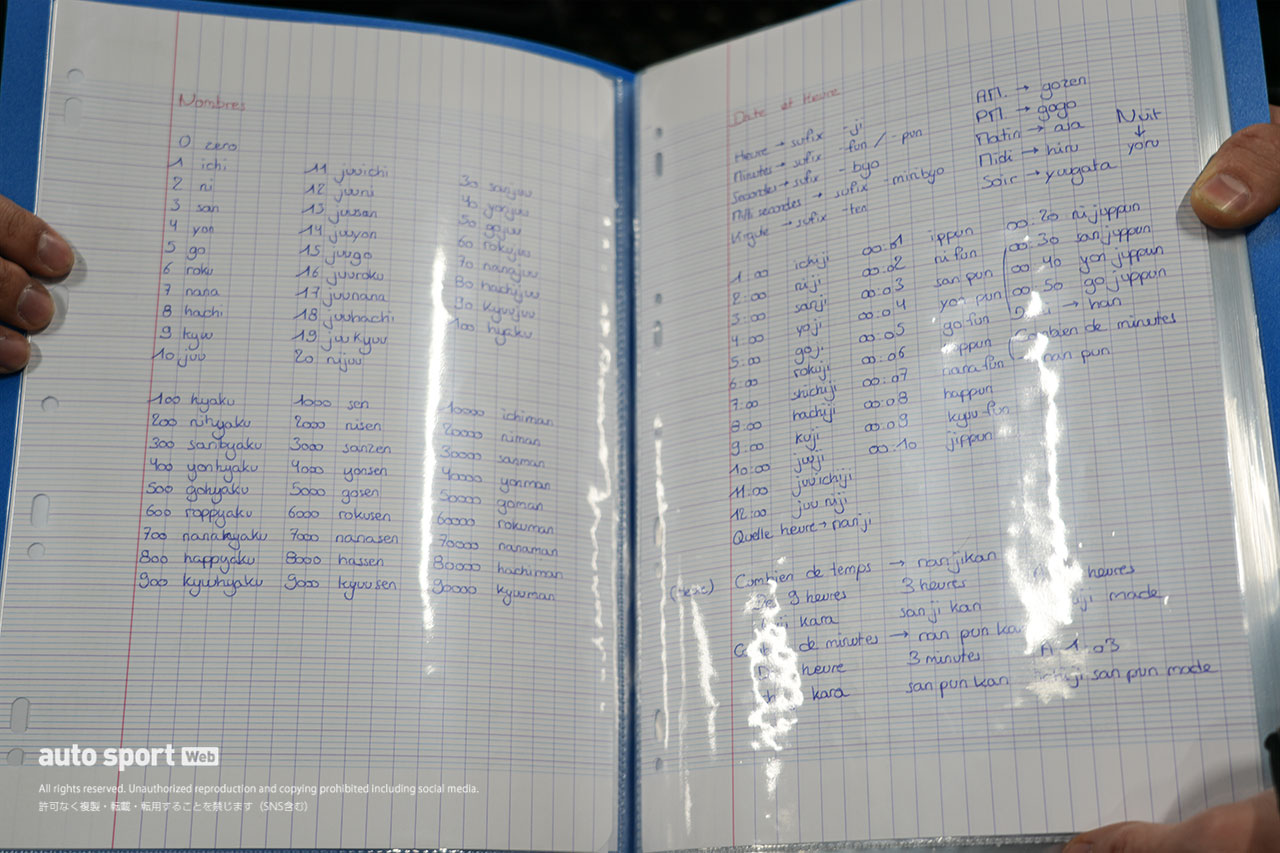 Nombres
0 zero
1 ichi
2 ni
3 san
4 yon
5 go
6 roku
7 nana
8 hachi
9 kyuu
10 juu
11 juuichi
12 juuni
13 juusan
14 juuyon
15 juugo
16 juuroku
17 juunana
18 juuhachi
19 juukyuu
20 nijuu
30 sanjuu
40 yonjuu
50 gojuu
60 rokujuu
70 nanajuu
80 hachijuu
90 kyuujuu
100 hyaku
100 hyaku
200 nihyaku
300 sanbyaku
400 yonhyaku
500 gohyaku
600 roppyaku
700 nanahyaku
800 happyaku
900 kyuuhyaku
1000 sen
2000 nisen
3000 sanzen
4000 yonsen
5000 gosen
6000 rokusen
7000 nanasen
8000 hassen
9000 kyuusen
10000 ichiman
20000 niman
30000 sanman
40000 yonman
50000 goman
60000 rokuman
70000 nanaman
80000 hachiman
90000 kyuuman
Date et Heure
Heure → sufix -ji
Minutes → sufix -fun / -pun
Secondes → sufix -byo
Milli secondes → sufix -minbyo
Virgule → sufix -ten
AM. → gozen
PM. → gogo
Matin → asa
Midi → hiru
Soir → yuugata
Nuit
↓
yoru
1:00 ichiji
2:00 niji
3:00 sanji
4:00 yoji
5:00 goji
6:00 rokuji
7:00 shichiji
8:00 hachiji
9:00 kuji
10:00 juuji
11:00 juuichiji
12:00 juuniji
Quelle heure → nanji
00:01 ippun
00:02 nifun
00:03 san pun
00:04 yon pun
00:05 gofun
00:06 ppun
00:07 nanafun
00:08 happun
00:09 kyuufun
00:10 jippun
00:20 nijuppun
00:30 sanjyppun
00:40 yonjyppun
00:50 gojyppun
→ han
Combien de minutes
nan pun
Combien de temps → nanjikan
9 heures 3 heures heures
kara sanji kan made
de minutes → nan pun
heure 3 minutes A 1:03
kara san pun kan san pun made
auto sport Web
All rights reserved. Unauthorized reproduction and copying prohibited including social media.
許可なく複製・転載・転用することを禁じます（SNS含む）